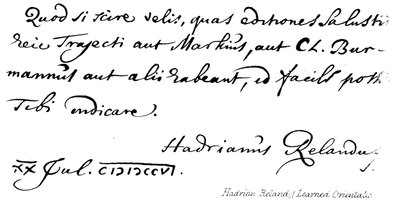 Quod si scire velis, quas editiones Salusti
heic Trajecti aut Markius, aut Cl. Bur-
mannus aut alii habeant, id facile
Tibi indicare.
Hadrianus Relandus
XX Jul. CIƆIƆCCVI.
Hadrian Reland; (Learned Orientalis